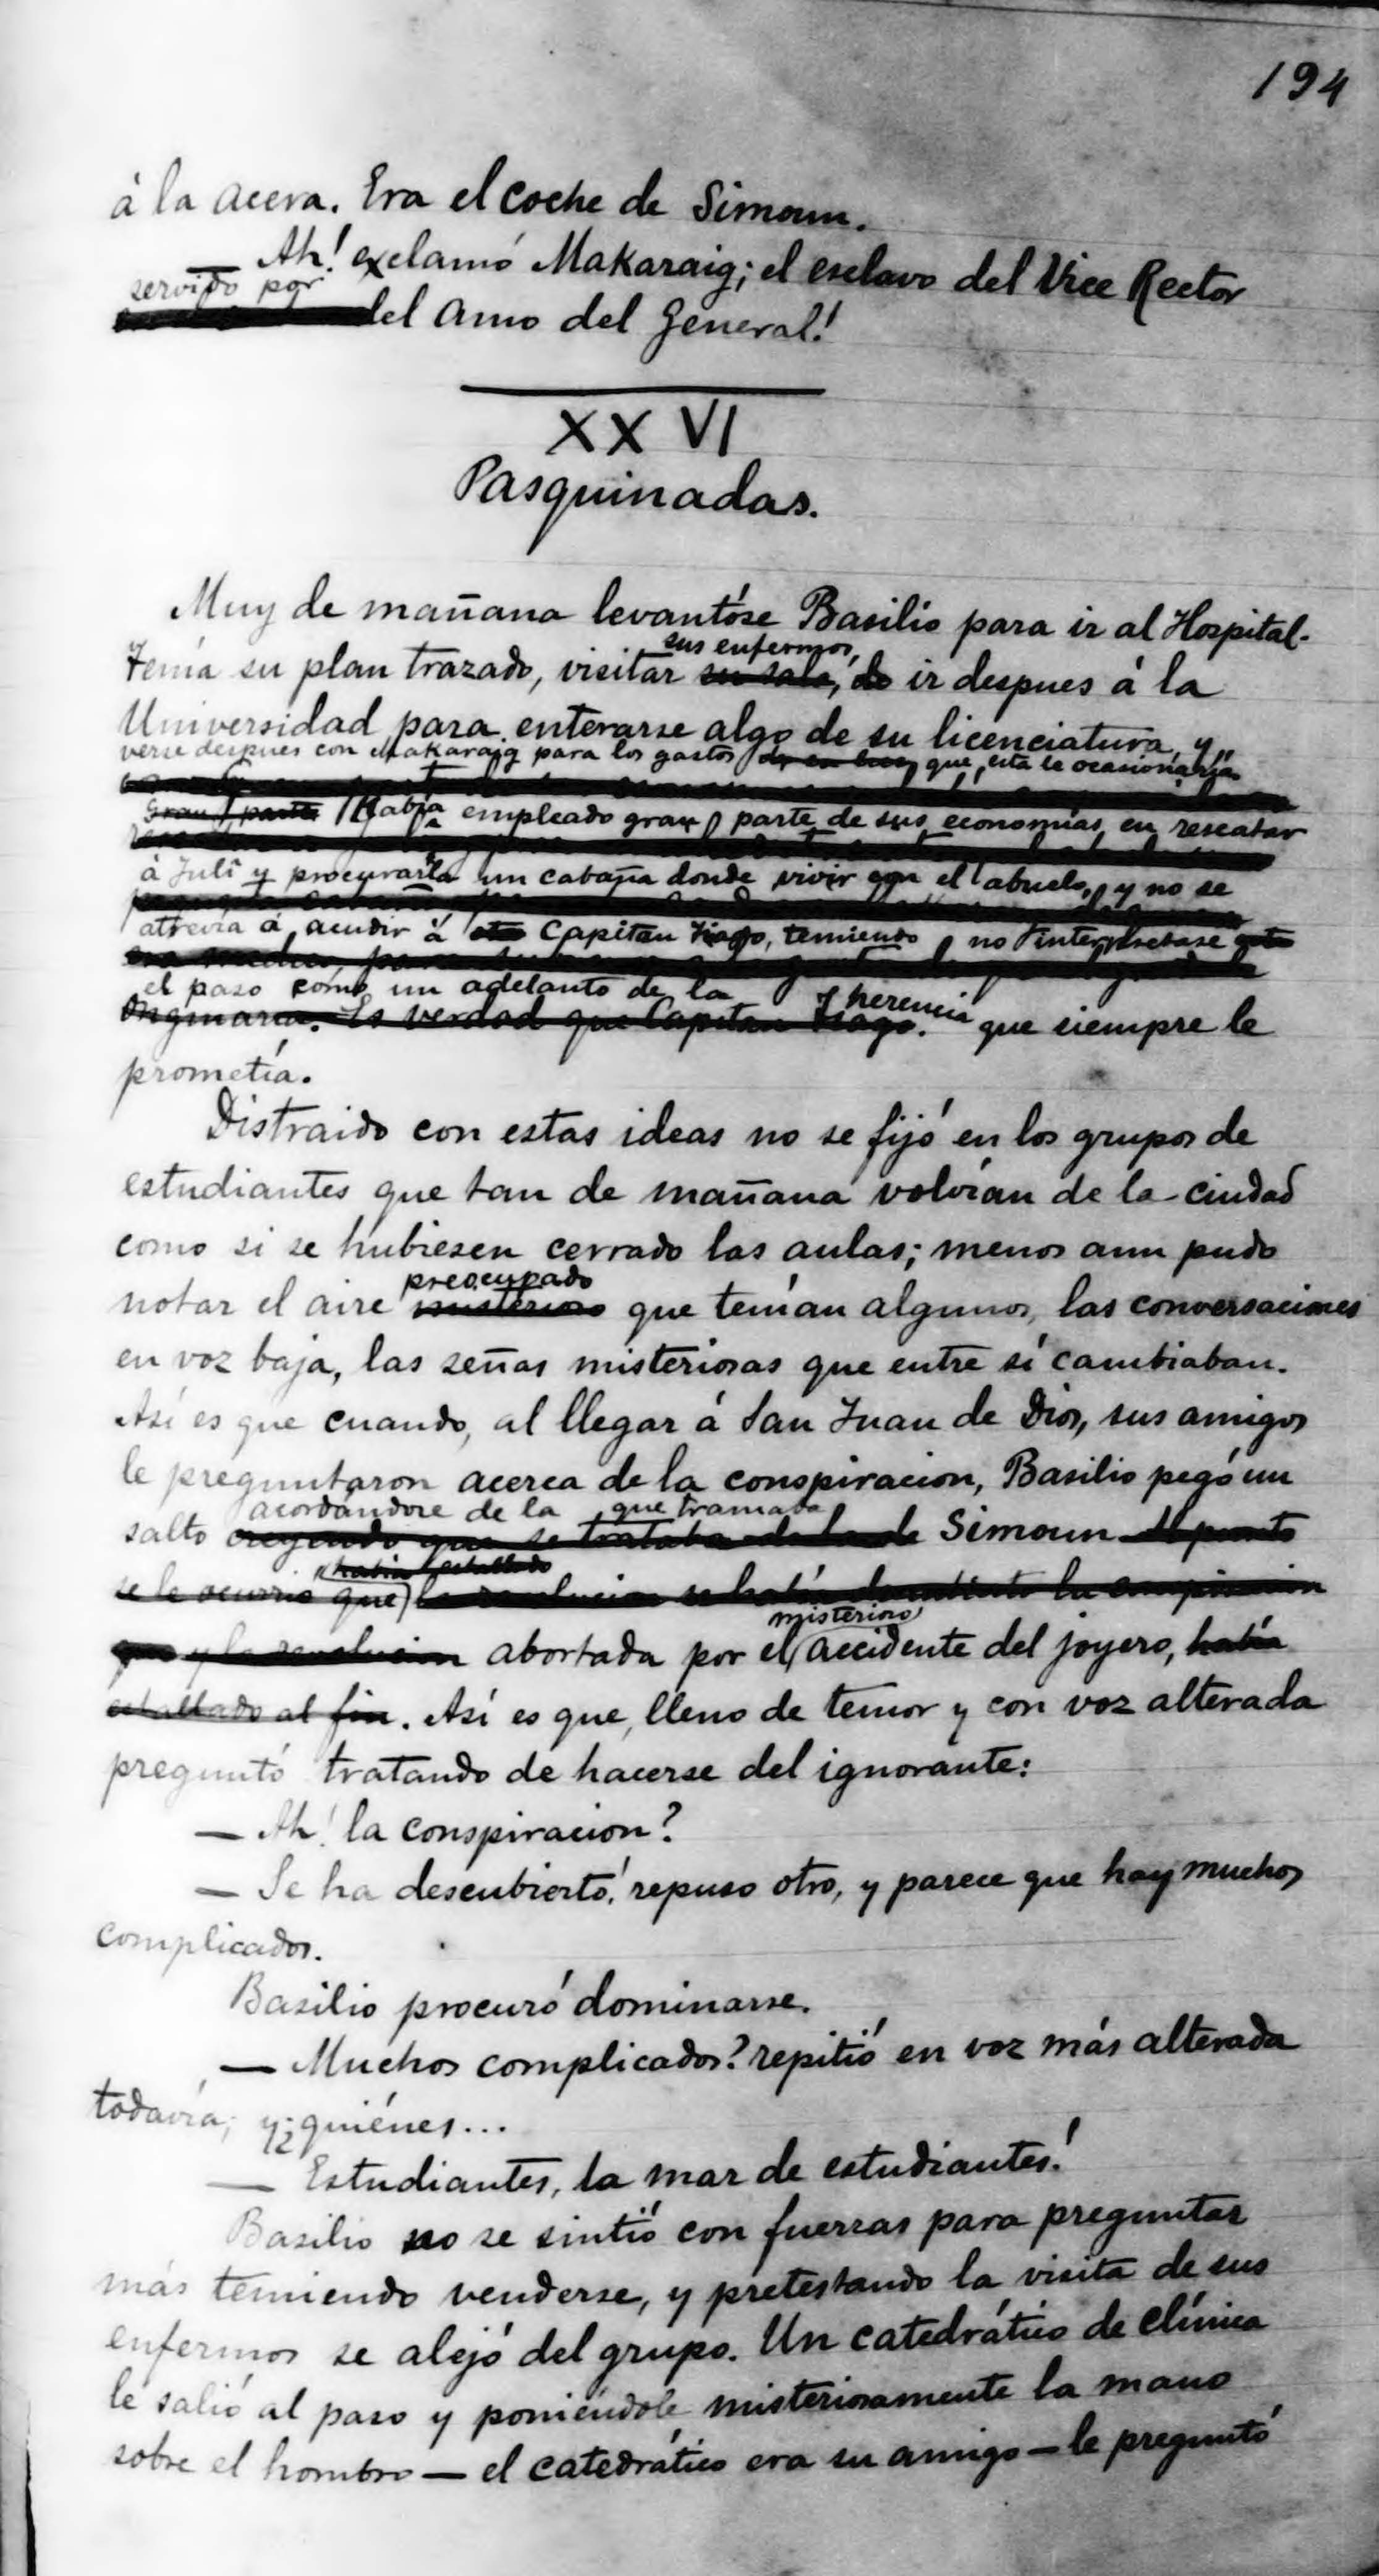 194
á la acera. Era el coche de Simoun.
— Ah! exclamó Makaraig; el esclavo del Vice Rector
servido por
del Amo del General!
XXVI
Pasquinadas.
Muy de mañana levantóse Basilio para ir al Hospital.
sus enfermos,
Tenía su plan trazado, visitar su sala, de ir despues á la
Universidad para enterarse algo de su licenciatura, y
verse despues con Makaraig para los gastos que esta le ocasionaría.
Gran parte Había empleado gran parte de sus economías en rescatar
á Julî y procurarla un cabaña donde vivir con el abuelo, y no se
atrevía á acudir á Capitan Tiago, temiendo no interpretase
el paso como un adelanto de la herencia que siempre le
Es verdad que Capitan Tiago.
prometía.
Distraido con estas ideas no se fijó en los grupos de
estudiantes que tan de mañana volvían de la ciudad
como si se hubiesen cerrado las aulas; menos aun pudo
preocupado
notar el aire misterioso que tenían algunos, las conversaciones
en voz baja, las señas misteriosas que entre sí cambiaban.
Así es que cuando, al llegar á San Juan de Dios, sus amigos
le preguntaron acerca de la conspiracion, Basilio pegó un
acordándose de la que tramaba
salto creyendo que se trataba de la de Simoun Al punto
había estallado
se le ocurrió que la revolucion se había la conspiracion
misterioso
y la revolucion abortada por el accidente del joyero, había
estallado al fin. Así es que, lleno de temor y con voz alterada
preguntó tratando de hacerse del ignorante:
— Ah! la conspiracion?
— Se ha descubierto! repuso otro, y parece que hay muchos
complicados.
Basilio procuró dominarse.
— Muchos complicados? repitió en voz más alterada
todavía; y ¿quiénes...
— Estudiantes, la mar de estudiantes!
Basilio no se sintió con fuerzas para preguntar
más temiendo venderse, y pretestando la visita de sus
enfermos se alejó del grupo. Un catedrático de clínica
le salió al paso y poniéndole misteriosamente la mano
sobre el hombro — el catedrático era su amigo — le preguntó